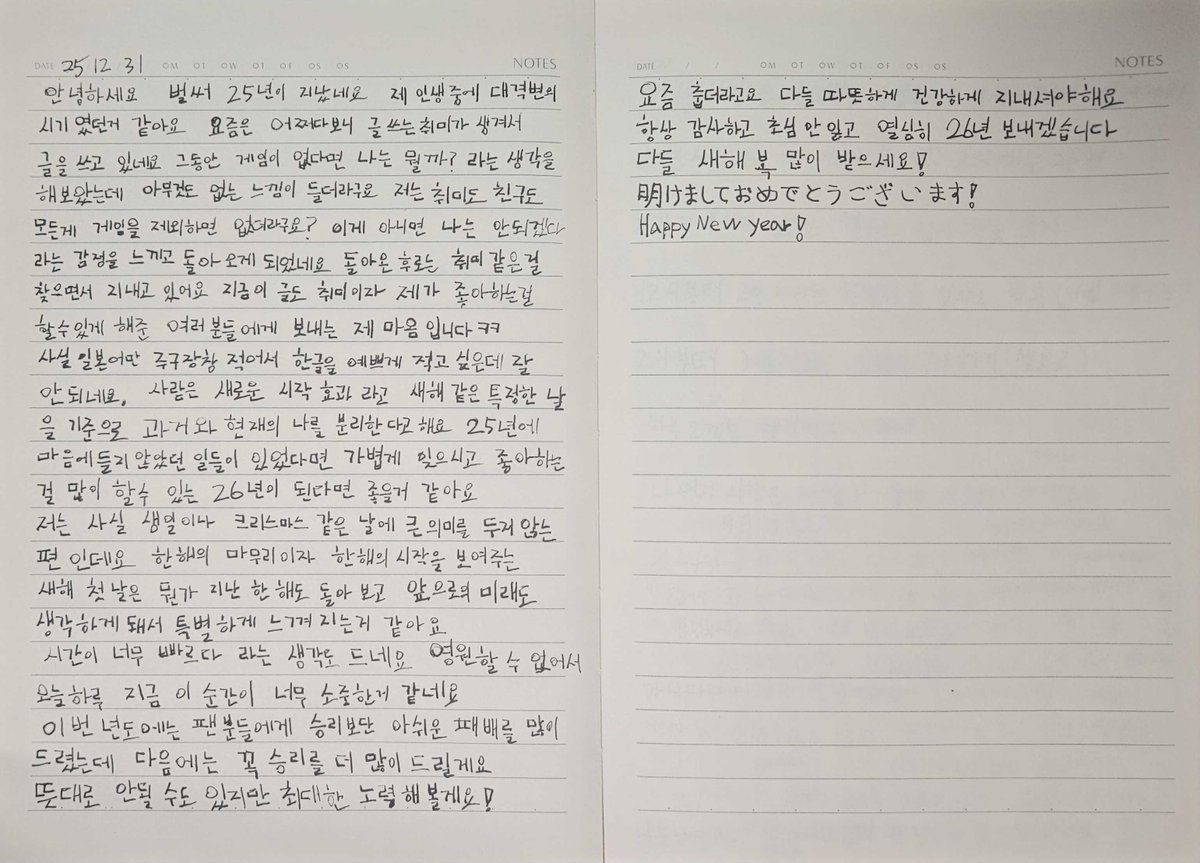 DATE 25 12 31 OM OT OW OT OF OS OS NOTES
안녕하세요 벌써 25년이 지났네요 제 인생중에 대격변의
시기 였던거 같아요 요즘은 어쩌다보니 글 쓰는 취미가 생겨서
글을 쓰고 있네요 그동안 게임이 없다면 나는 뭘까? 라는 생각을
해보았는데 아무것도 없는 느낌이 들더라구요 저는 취미도 친구도
모든게 게임을 제외하면 없더라구요? 이게 아니면 나는 안되겠다
라는 감정을 느끼고 돌아 오게 되었네요 돌아온 후로는 취미 같은걸
찾으면서 지내고 있어요 지금이 글도 취미이자 제가 좋아하는걸
할수있게 해준 여러분들에게 보내는 제 마음 입니다 ㅋㅋ
사실 일본어만 주구장창 적어서 한글을 예쁘게 적고 싶은데 잘
안되네요. 사람은 새로운 시작 효과 라고 새해 같은 특정한 날
을 기준으로 과거와 현재의 나를 분리한다고 해요 25년에
마음에들지 않았던 일들이 있었다면 가볍게 잊으시고 좋아하는
걸 많이 할수 있는 26년이 된다면 좋을거 같아요
저는 사실 생일이나 크리스마스 같은 날에 큰 의미를 두지 않는
편 인데요 한해의 마무리이자 한해의 시작을 보여주는
새해 첫 날은 뭔가 지난 한 해도 돌아 보고 앞으로의 미래도
생각하게 돼서 특별하게 느껴 지는거 같아요
시간이 너무 빠르다 라는 생각도 드네요 영원할 수 없어서
오늘하루 지금 이 순간이 너무 소중한거 같네요
이번 년도에는 팬분들에게 승리보단 아쉬운 패배를 많이
드렸는데 다음에는 꼭 승리를 더 많이 드릴게요
뜻대로 안될 수도 있지만 최대한 노력해 볼게요!
DATE / / OM OT OW OT OF OS OS NOTES
요즘 춥더라고요 다들 따뜻하게 건강하게 지내셔야해요
항상 감사하고 초심 안 잃고 열심히 26년 보내겠습니다
다들 새해 복 많이 받으세요!
明けましておめでとうございます!
Happy New year!